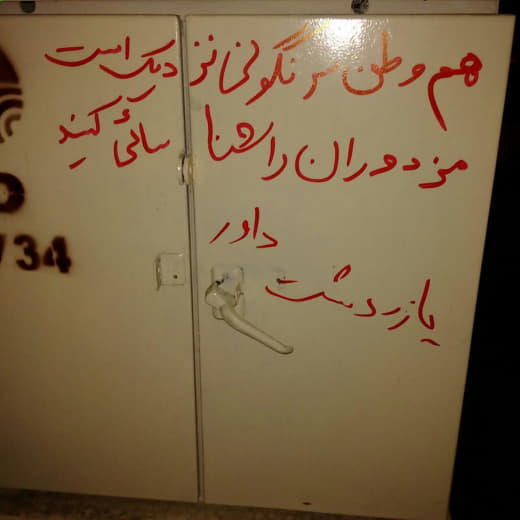 هم وطن سرنگونی نزدیک است
مزدوران را شناسائی کنید
داور
یازردشت
34